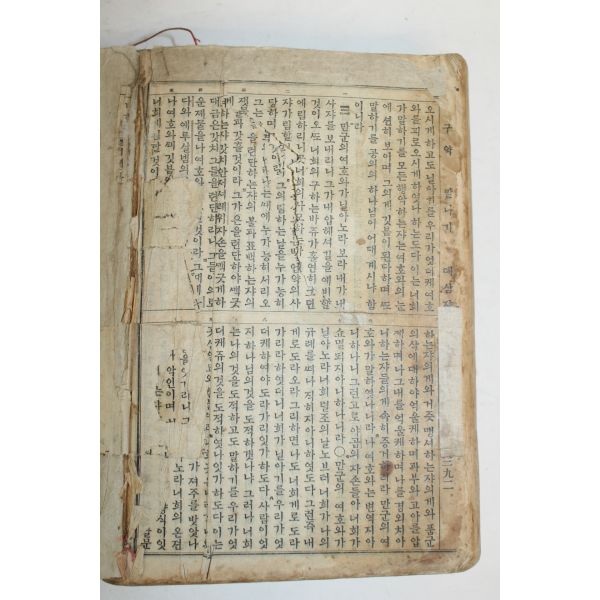 구약 말나기 뎨삼쟝
오시게하고도닐아기를우리가엇더케여호
와를괴로오시게하엿나하는도다이는너희
가말하기를모든행악하는쟈는여호와의눈
에션히보이며그의게깃븜이된다하며또
말하기를공의의하나님이어대계시냐함
이니라
三 만군의여호와가닐아노라보라내가내
사쟈를보내리니그가내압헤셔길을예비할
것이오또너희의구하는바쥬가홀연히그뎐
에림하리니곳너희의사모하는바언약의사
쟈가림할것이라그의림하는날을누가능히
당하며 나타나는때에누가능히서리오
그는 련단하는쟈의불과표백하는쟈의
잿물과갓흘것이라그가은을련단하야깨긋
케하는쟈갓치안져셔레위자손을깨긋게하
대금은갓치그들을련단하리니그들이의로
운제물을나여호와 것이라그때에
다와예루살넴의
나여호와께깃븜
너희게 갈것이
二九二
하는쟈의게와거즛맹셔하는쟈의게와품군
의삭에대하야억울케하며과부와고아를압
졔하며나그내를억울케하며나를경외치아
니하는쟈들의게속히증거하리라만군의여
호와가말하엿나니라나여호와는변역지아
니하나니그런고로야곱의자손들아너희가
쇼멸되지아니하나니라○만군의여호와가
닐아노라너희렬조의날노브터너희가나의
규례를떠나직히지아니하엿도다그런즉내
게로도라오라그리하면나도너희게로도라
가리라하엿더니너희가닐아기를우리가엇
더케하여야도라가리잇가하도다사람이엇
지하나님의것을도적하겟나냐그러나너희
는나의것을도적하고도말하기를우리가엇
더케쥬의것을도적하엿나잇가하도다이는
악인이며
가져주를밧앗나
노라너희의온젼